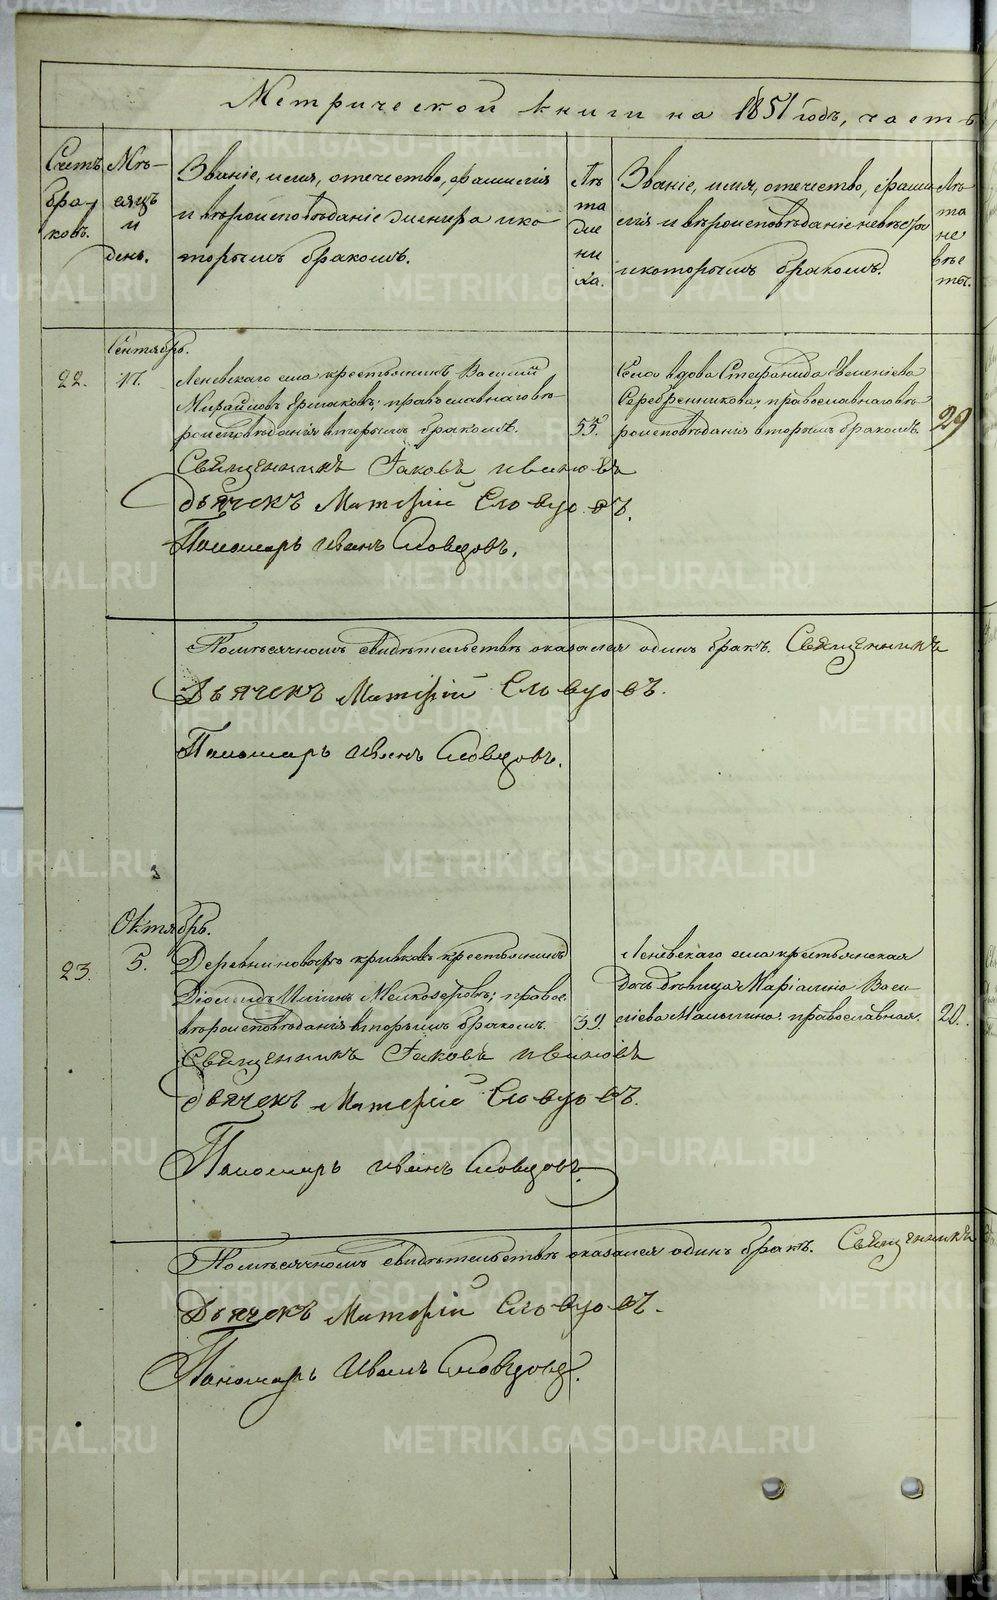 Метрической книги на 1851 годъ, часть
Счетъ браковъ.
Мѣсяцъ и день.
Званіе, имя, отечество, фамилія
и вѣроисповѣданіе жениха и ко
торымъ бракомъ.
Лѣта жениха.
Званіе, имя, отечество, фами
лія и вѣроисповѣданіе невѣсты
и которымъ бракомъ.
Лѣта невѣсты.
Сентябрь.
22. 17.
Леневскаго села крестьянинъ Василій
Михайловъ Ермаковъ; православнаго вѣ
роисповѣданія вторымъ бракомъ. 55.
Села вдова Стефанида
Серебренникова, православнаго вѣ
роисповѣданія вторымъ бракомъ. 29
Священникъ Іаковъ Ивановъ
Дьячекъ Матѳій Словцовъ.
Пономарь Иванъ Словцовъ.
Помѣсячномъ свидѣтельствѣ оказался одинъ бракъ. Священникъ
Дьячекъ Матѳій Словцовъ.
Пономарь Иванъ Словцовъ.
Октябрь.
23 5.
Деревни крестьянинъ
Діомидъ Мелкозеровъ; правос.
вѣроисповѣданія вторымъ бракомъ. 39.
Леневскаго села крестьянская
дочь дѣвица Васи
лієва православная. 20.
Священникъ Іаковъ Ивановъ
Дьячекъ Матѳій Словцовъ.
Пономарь Иванъ Словцовъ.
Помѣсячномъ свидѣтельствѣ оказался одинъ бракъ. Священникъ
Дьячекъ Матѳій Словцовъ.
Пономарь Иванъ Словцовъ.
METRIKI.GASO-URAL.RU